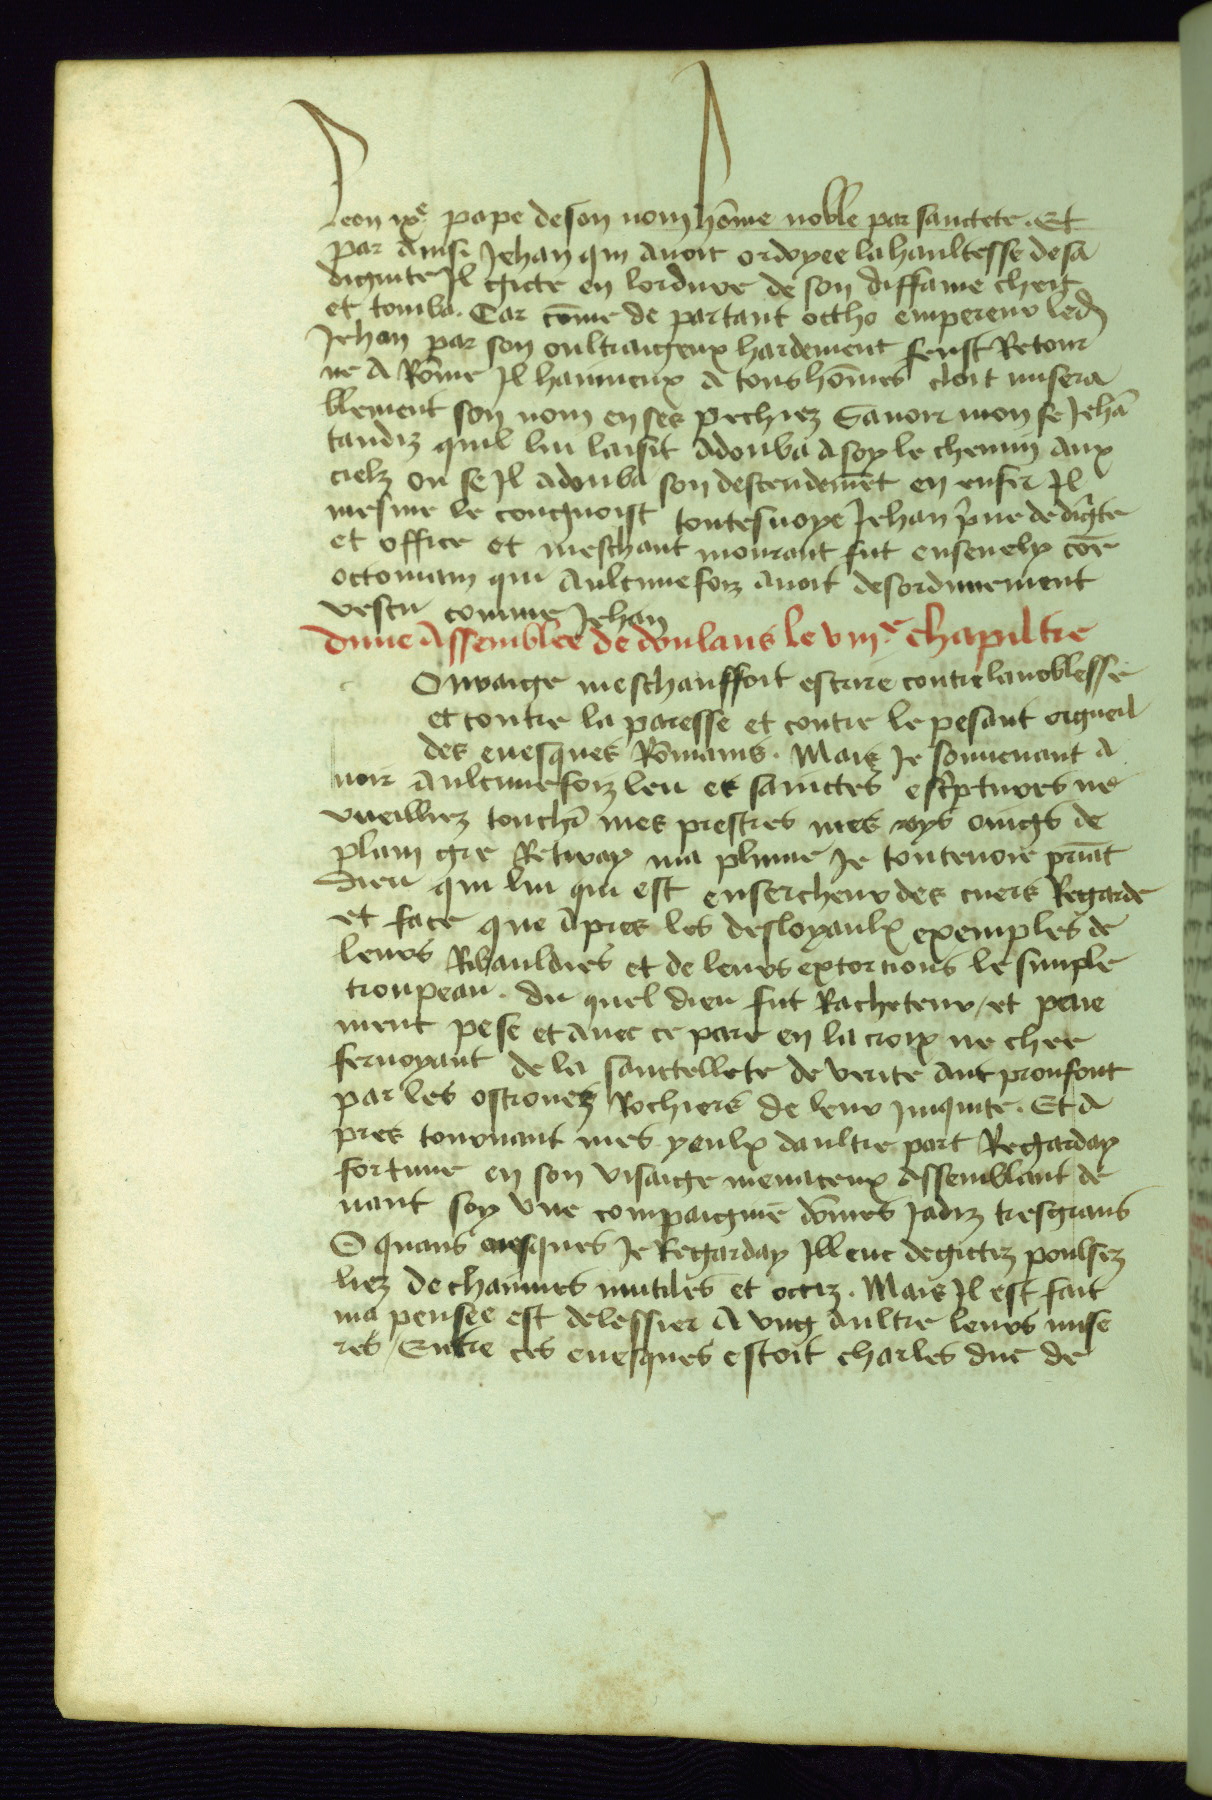 Leon ixe pape de son nom hōme noble par sainctete. Et
par ainsi Jehan qui auoit ordoyee la haultesse de sa
dignite Il gicte en lordure de son diffame cheit
et tomba. Car cōme de partant ottho empereur led
Jehan par son oultraigeux hardement feust Retour
ne A Rōme Il hayneux A tous hōmes cloit misera
blement son nom en ses pechiez Sauoir mon se Jehā
tandiz quil lui laisit Adouba A soy le chemin aux
cielz ou se Il adouba son descendemēt en enfer Il
mesme le congnoist toutesuoye Jehan p̄ue de dig̃te
et office et meschant mourant fut enseuely cōe
octouiam qui Aulcunefoiz auoit desordunement
vescu comme Jehan
Dune Assemblee de doulans le viiie chapiltre
Ouraige meschauffoit escrire contre la noblesse
et contre la paresse et contre le pesant orgueil
des euesques Rōmains. Mais Je souuenant a
uoir Aulcunefoiz leu es sainctes escp̄tures ne
vueilliez touchī mes prestres mes roys oingts de
plain gre Retiray ma plume Je contenoie priāt
dieu qui lui qui est ensercheur des cuers Regarde
et face que Apres les desloyaulx exemples de
leurs Ribauldies et de leurs extorcions le simple
troupeau. du quel dieu fut Racheteur / et peue
ment pese et auec ce pare en la croix ne chee
feruoyant de la sanctellete de verite aut proufont
par les ostrouez Rochiers de leur iniquite. Et A
pres tournant mes yeulx daultre part Regarday
fortune en son visaige menaceux Assemblant de
uant soy vne compaignie dōmes Jadiz tresgrans
O quans euesques Je Regarday Illeuc degictiz poulsez
liez de chaimes mutiles et occiz. Mais Il est fait
ma pensee est delessier A vng aultre leurs mise
res / Entre ces euesques estoit charles duc de